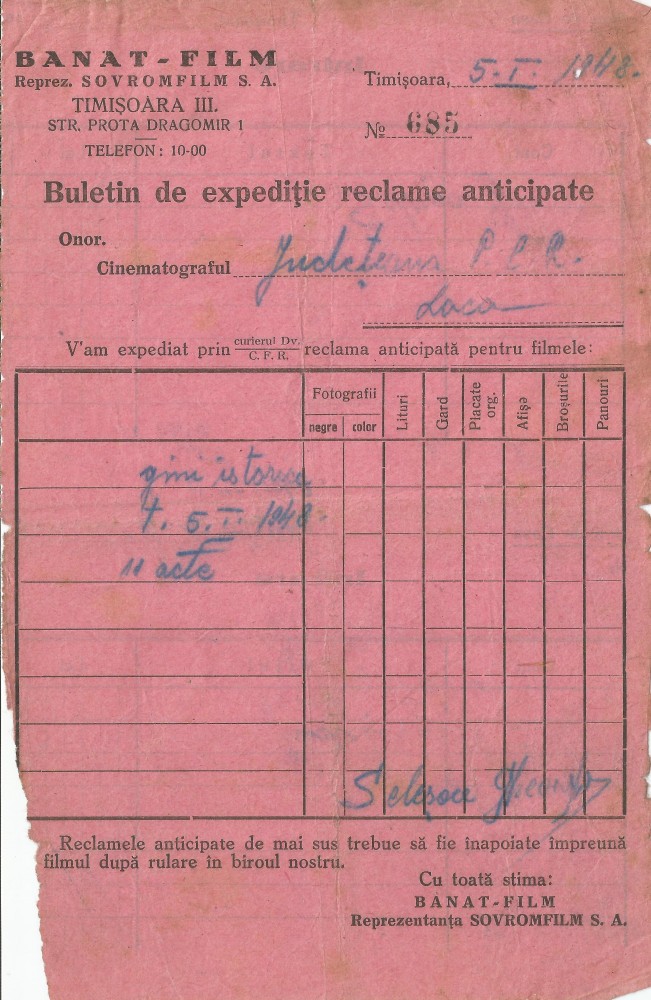 BANAT-FILM
Reprez. SOVROMFILM S. A.
TIMIȘOARA III.
STR. PROTA DRAGOMIR 1
TELEFON: 10-00
Timișoara, 5-I. 1948.
№ 685
Buletin de expediţie reclame anticipate
Onor.
Cinematograful Județeana P.C.R.
Loco
V'am expediat prin curierul Dv. / C. F. R. reclama anticipată pentru filmele:
Fotografii
negre color Lituri Gard Placate org. Afișe Broșurile Panouri
5. I. 1948.
11 acte
Reclamele anticipate de mai sus trebue să fie înapoiate împreună
filmul după rulare în biroul nostru.
Cu toată stima:
BANAT-FILM
Reprezentanța SOVROMFILM S. A.